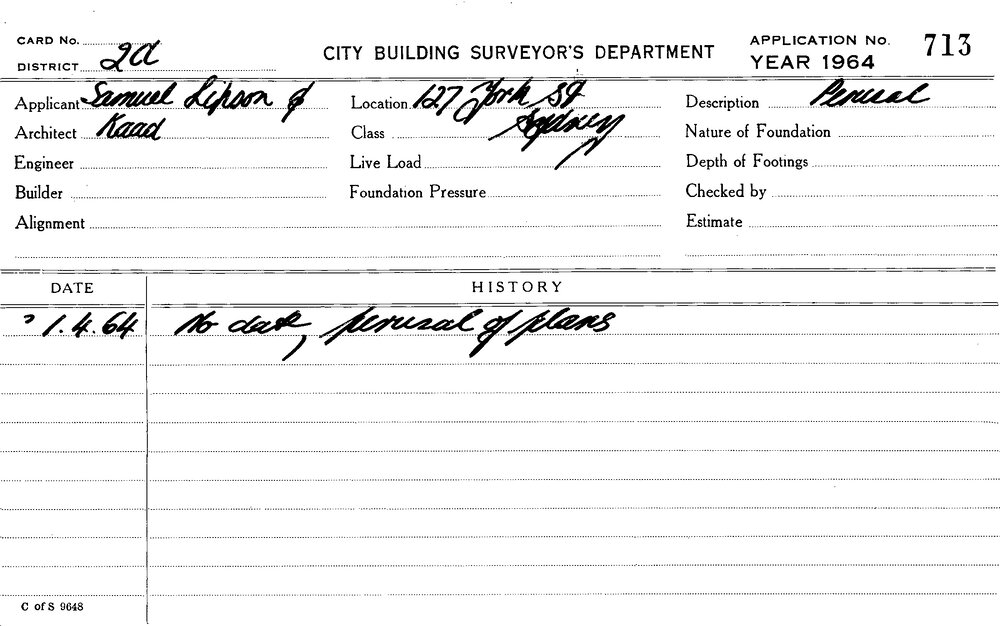 CARD No.
DISTRICT 2d
CITY BUILDING SURVEYOR'S DEPARTMENT
APPLICATION No. 713
YEAR 1964
Applicant Samuel Lipson &
Location 127 York St
Description Perusal
Architect Kaad
Class Sydney
Nature of Foundation
Engineer
Live Load
Depth of Footings
Builder
Foundation Pressure
Checked by
Alignment
Estimate
DATE
HISTORY
? 1.4.64 No date, perusal of plans
C of S 9648